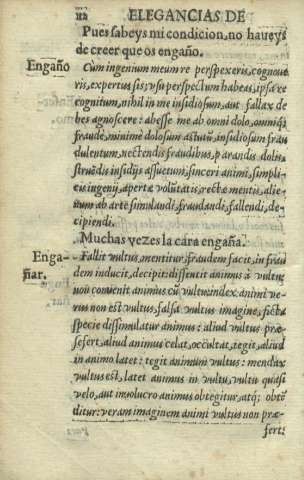 112 ELEGANCIAS DE
Pues sabeys mi condicion, no haueys
de creer que os engaño.
Engaño Cùm ingenium meum re perspexeris, cognoue
ris, expertus sis; vsu perspectum habeas, ipsa re
cognitum, nihil in me insidiosum, aut fallax de
bes agnoscere: abesse me ab omni dolo, omniq́;
fraude, minimè dolosum astutū, insidiosum frau
dulentum, nectendis fraudibus, parandis dolis,
struēdis insidijs assuetum, sinceri animi, simpli-
cis ingenij, apertæ volūtatis, rectæ mentis, alie-
num ab arte simulandi, fraudandi, fallendi, de-
cipiendi.
Muchas vezes la cara engaña.
Enga-
ñar.
Fallit vultus, mentitur, fraudem facit, in frau
dem inducit, decipit: dissentit animus à vultu;
non conuenit animus cū vultu: index animi ve-
rus non est vultus, falsa vultus imagine, ficta
specie dissimulatur animus: aliud vultus præ-
sefert, aliud animus celat, occultat, tegit, aliud
in animo latet: tegit animum vultus: mendax
vultus est, latet animus in vultu, vultu quasi
velo, aut inuolucro animus obtegitur, atq́; obtē
ditur: veram imaginem animi vultus non præ-
fert: